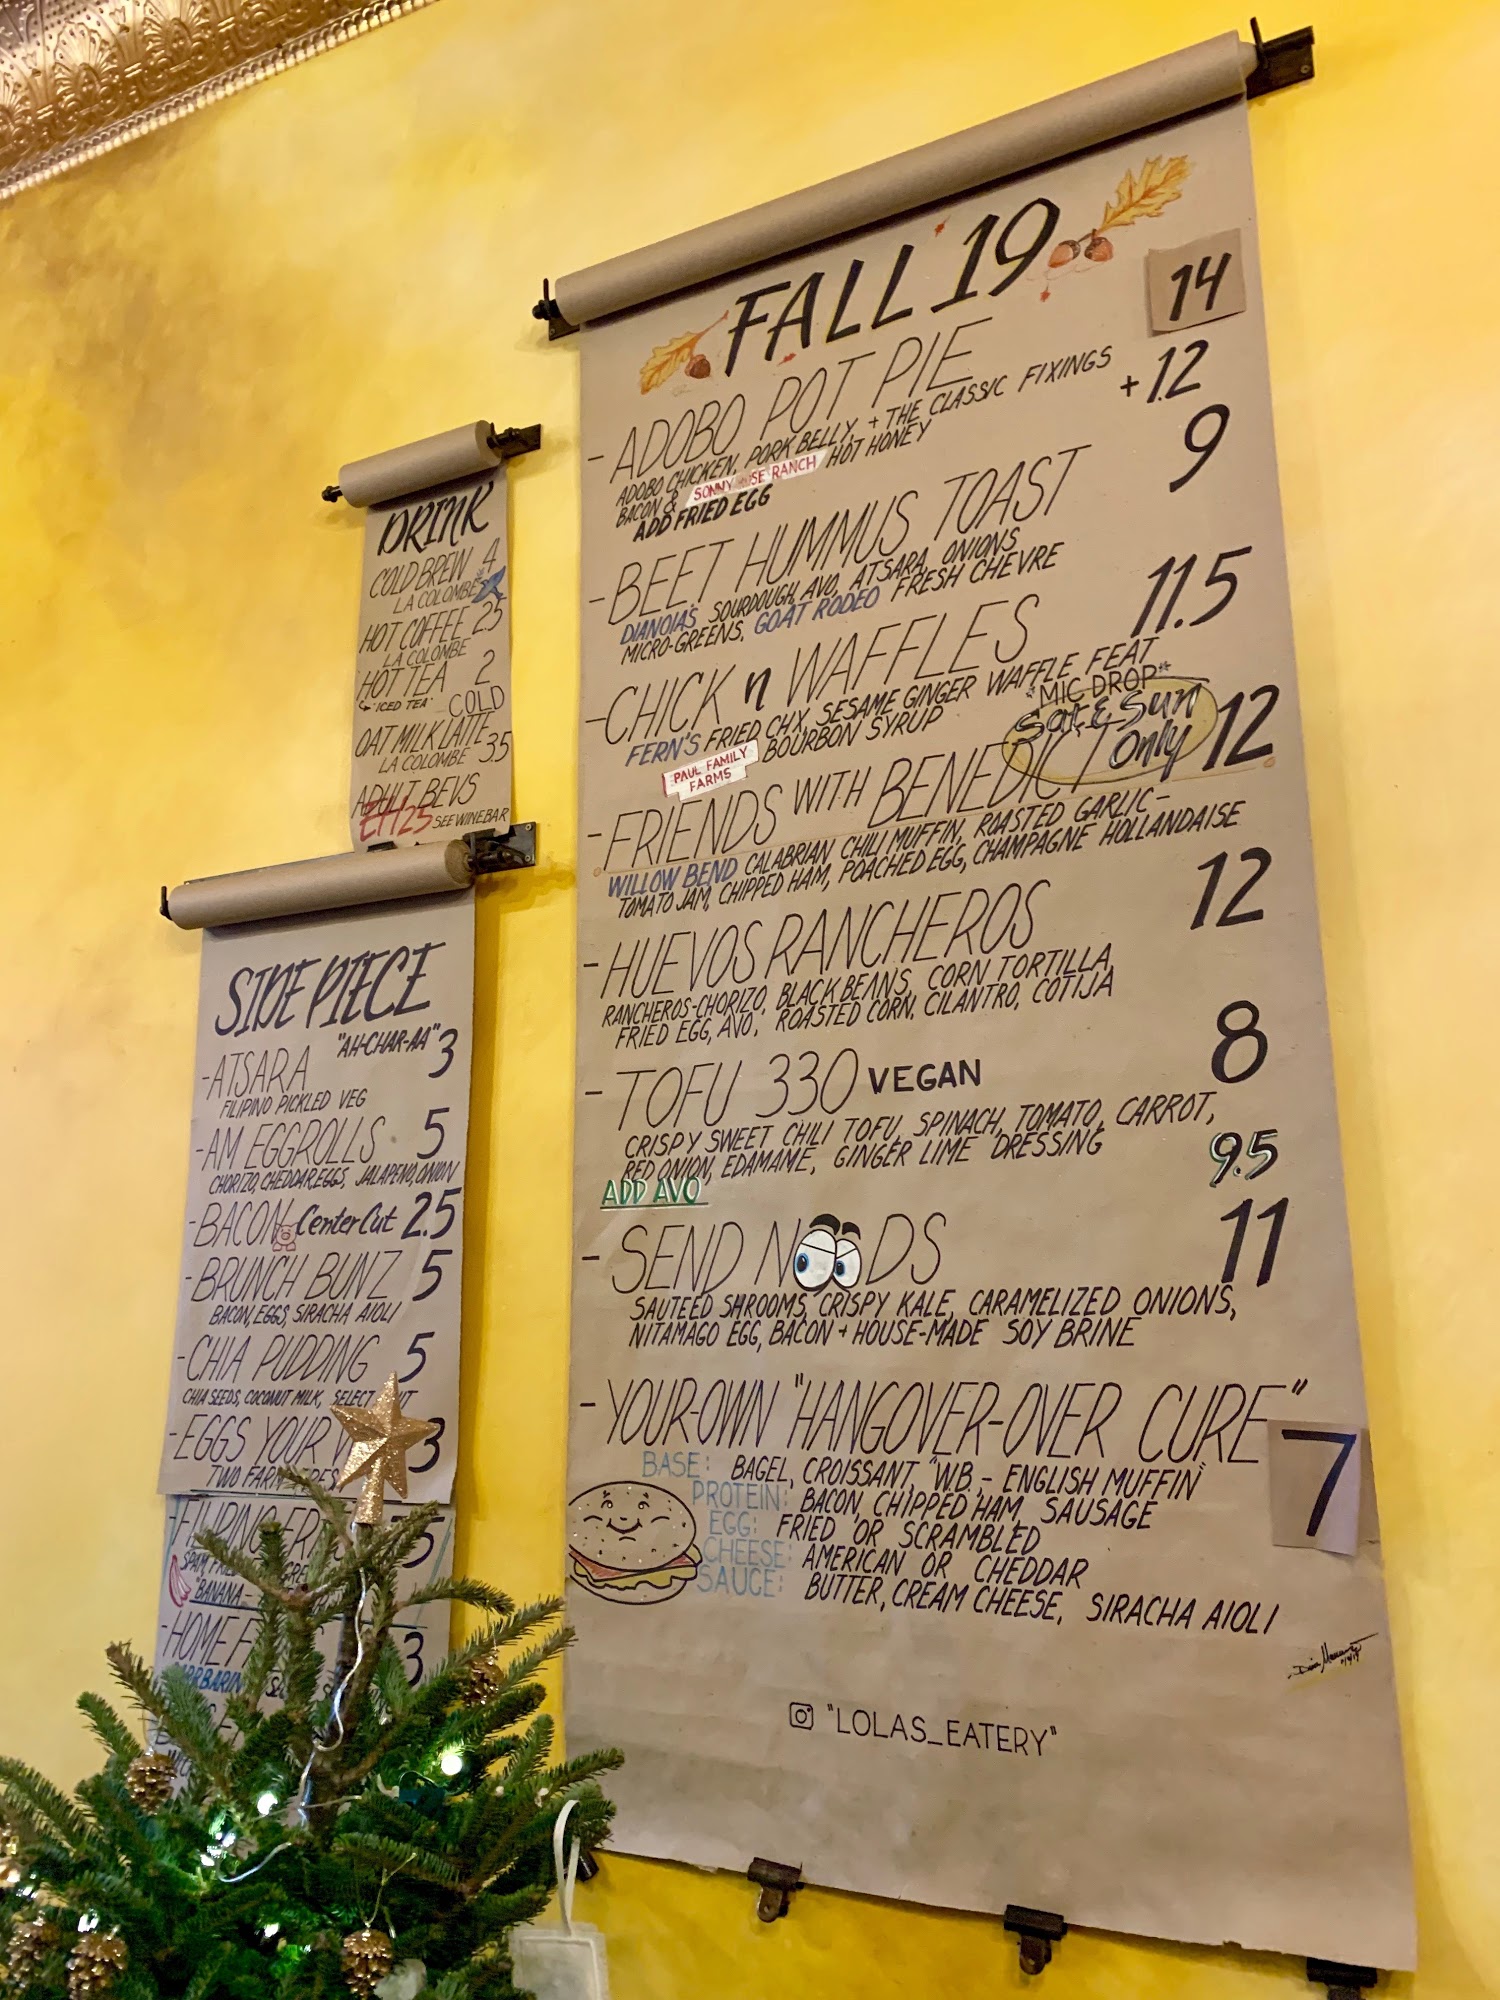 DRINK
COLD BREW 4
LA COLOMBE
HOT COFFEE 2.5
LA COLOMBE
HOT TEA 2
"ICED TEA" COLD
OAT MILK LATTE 3.5
LA COLOMBE
ADULT BEVS
SEE WINEBAR
SIDE PIECE
"AH-CHAR-AA"
-ATSARA 3
FILIPINO PICKLED VEG
-AM EGGROLLS 5
CHORIZO, CHEDDAR, EGGS, JALAPENO, ONION
-BACON Center Cut 2.5
-BRUNCH BUNZ 5
BACON, EGGS, SIRACHA AIOLI
-CHIA PUDDING 5
CHIA SEEDS, COCONUT MILK, SELECT
-EGGS YOUR 3
TWO FARM
-FILIPINO 5
SPAM,
"BANANA-
-HOME 3
FALL '19
- ADOBO POT PIE 14
ADOBO CHICKEN, PORK BELLY, + THE CLASSIC FIXINGS
BACON & SONNY ROSE RANCH HOT HONEY
ADD FRIED EGG +1.2
- BEET HUMMUS TOAST 9
DIANOIA'S SOURDOUGH, AVO, ATSARA, ONIONS
MICRO-GREENS, GOAT RODEO FRESH CHEVRE
- CHICK n WAFFLES 11.5
FERN'S FRIED CHX, SESAME GINGER WAFFLE FEAT
*MIC DROP*
PAUL FAMILY FARMS BOURBON SYRUP
Sat & Sun Only
- FRIENDS WITH BENEDICT 12
WILLOW BEND CALABRIAN CHILI MUFFIN, ROASTED GARLIC-
TOMATO JAM, CHIPPED HAM, POACHED EGG, CHAMPAGNE HOLLANDAISE
- HUEVOS RANCHEROS 12
RANCHEROS-CHORIZO, BLACK BEANS, CORN TORTILLA,
FRIED EGG, AVO, ROASTED CORN, CILANTRO, COTIJA
- TOFU 330 VEGAN 8
CRISPY SWEET CHILI TOFU, SPINACH, TOMATO, CARROT,
RED ONION, EDAMAME, GINGER LIME DRESSING
ADD AVO 9.5
- SEND NOODS 11
SAUTEED SHROOMS, CRISPY KALE, CARAMELIZED ONIONS,
NITAMAGO EGG, BACON + HOUSE-MADE SOY BRINE
- YOUR-OWN "HANGOVER-OVER CURE" 7
BASE: BAGEL, CROISSANT, "W.B. - ENGLISH MUFFIN"
PROTEIN: BACON, CHIPPED HAM, SAUSAGE
EGG: FRIED OR SCRAMBLED
CHEESE: AMERICAN OR CHEDDAR
SAUCE: BUTTER, CREAM CHEESE, SIRACHA AIOLI
"LOLAS_EATERY"